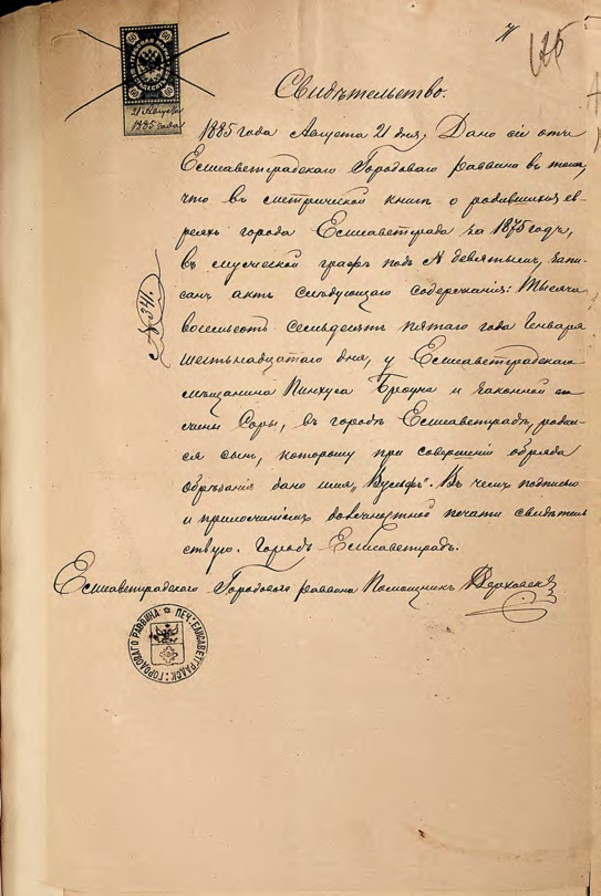 125
ГЕРБОВАЯ МАРКА
60
60
ШЕСТЬДЕСЯТ
21 Августа
1885 года
Свидѣтельство.
1885 года Августа 21 дня, Дано сіе отъ
Елисаветградскаго Городоваго раввина въ томъ,
что въ метрической книгѣ о родившихся ев-
реяхъ города Елисаветграда за 1875 годъ,
въ мужеской графѣ подъ № девятымъ, запи-
санъ актъ слѣдующаго содержанія: Тысяча
восемьсотъ семьдесятъ пятаго года Января
шестьнадцатаго дня, у Елисаветградскаго
мѣщанина Пинхуса Броуна и законной его
жены Соры, въ городѣ Елисаветградѣ, родил-
ся сынъ, которому при совершеніи обряда
обрѣзанія дано имя „Вульфъ". Въ чемъ подписью
и приложеніемъ должностной печати свидѣтель
ствую. Городъ Елисаветградъ.
Елисаветградскаго Городоваго раввина Помощникъ
ПЕЧ: ЕЛИСАВЕТГРАДСК: ГОРОДОВАГО РАВВИНА